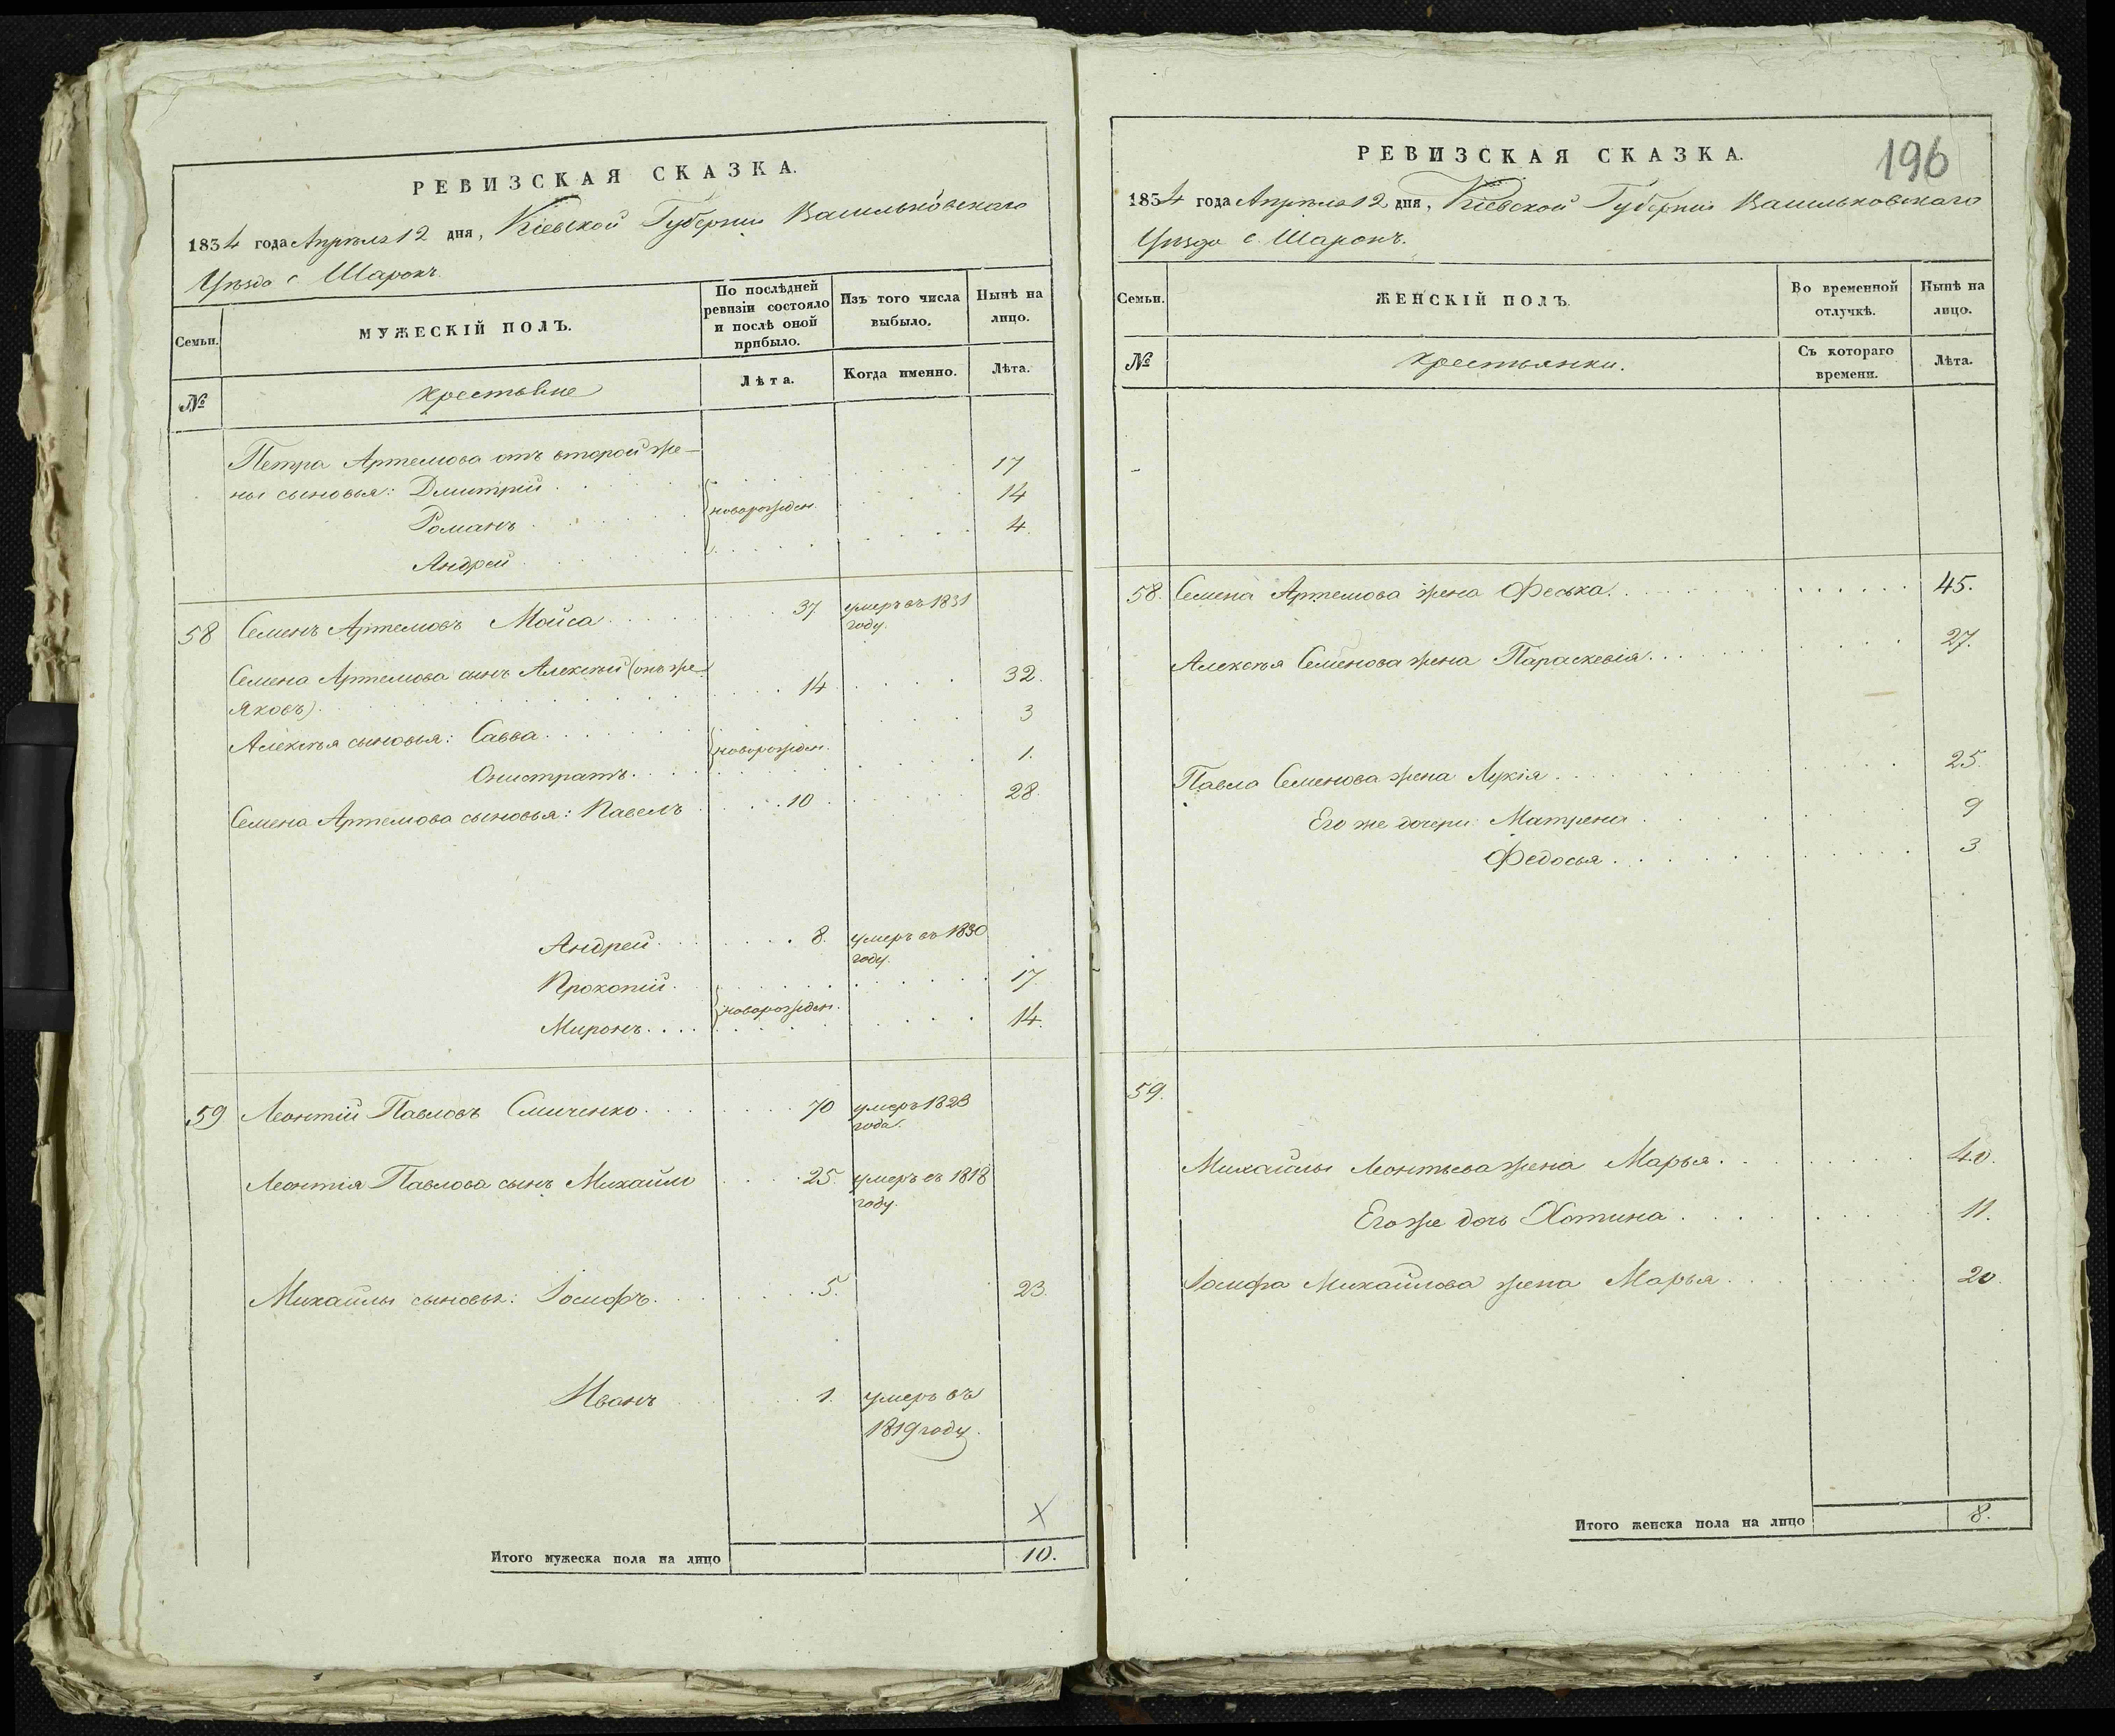 РЕВИЗСКАЯ СКАЗКА.
1834 года Апрѣля 12 дня, Кіевской Губерніи Васильковскаго
Уѣзда с. Шарокъ.
Семьи.
МУЖЕСКІЙ ПОЛЪ.
По послѣдней ревизіи состояло и послѣ оной прибыло.
Изъ того числа выбыло.
Нынѣ на лицо.
№
крестьяне
Лѣта.
Когда именно.
Лѣта.
Петра Артемова отъ второй же-
ны сыновья: Дмитрій 17
Романъ новорожден. 14
Андрей 4.
58 Семенъ Артемовъ Мойса 37 умеръ въ 1831
году.
Семена Артемова сынъ Алексѣй (онъ же
Яковъ) 14 32.
Алексѣя сыновья: Савва новорожден. 3
Онистратъ 1.
Семена Артемова сыновья: Павелъ 10 28.
Андрей 8. умеръ въ 1830
году.
Прокопій 17.
новорожден.
Миронъ 14.
59 Леонтій Павловъ Смиченко 70 умеръ 1823
года.
Леонтія Павлова сынъ Михайло 25. умеръ въ 1818
году.
Михайлы сыновья: Іосифъ 5. 23.
Иванъ 1. умеръ въ
1819 году.
X
Итого мужеска пола на лицо 10.
196
РЕВИЗСКАЯ СКАЗКА.
1834 года Апрѣля 12 дня, Кіевской Губерніи Васильковскаго
Уѣзда с. Шарокъ.
Семьи.
ЖЕНСКІЙ ПОЛЪ.
Во временной отлучкѣ.
Нынѣ на лицо.
№
крестьянки.
Съ котораго времени.
Лѣта.
58. Семена Артемова жена Феська 45.
Алексѣя Семенова жена Параскевія 27.
Павла Семенова жена Лукія 25.
Его же дочери: Матрена 9
Федосья 3
59.
Михайлы Леонтьева жена Марья 40.
Его же дочь Хотина 11.
Іосифа Михайлова жена Марья 20.
Итого женска пола на лицо 8.